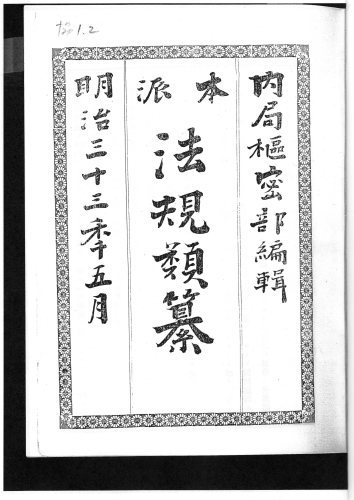 内局樞密部編輯
本派
法規類纂
明治三十三年五月